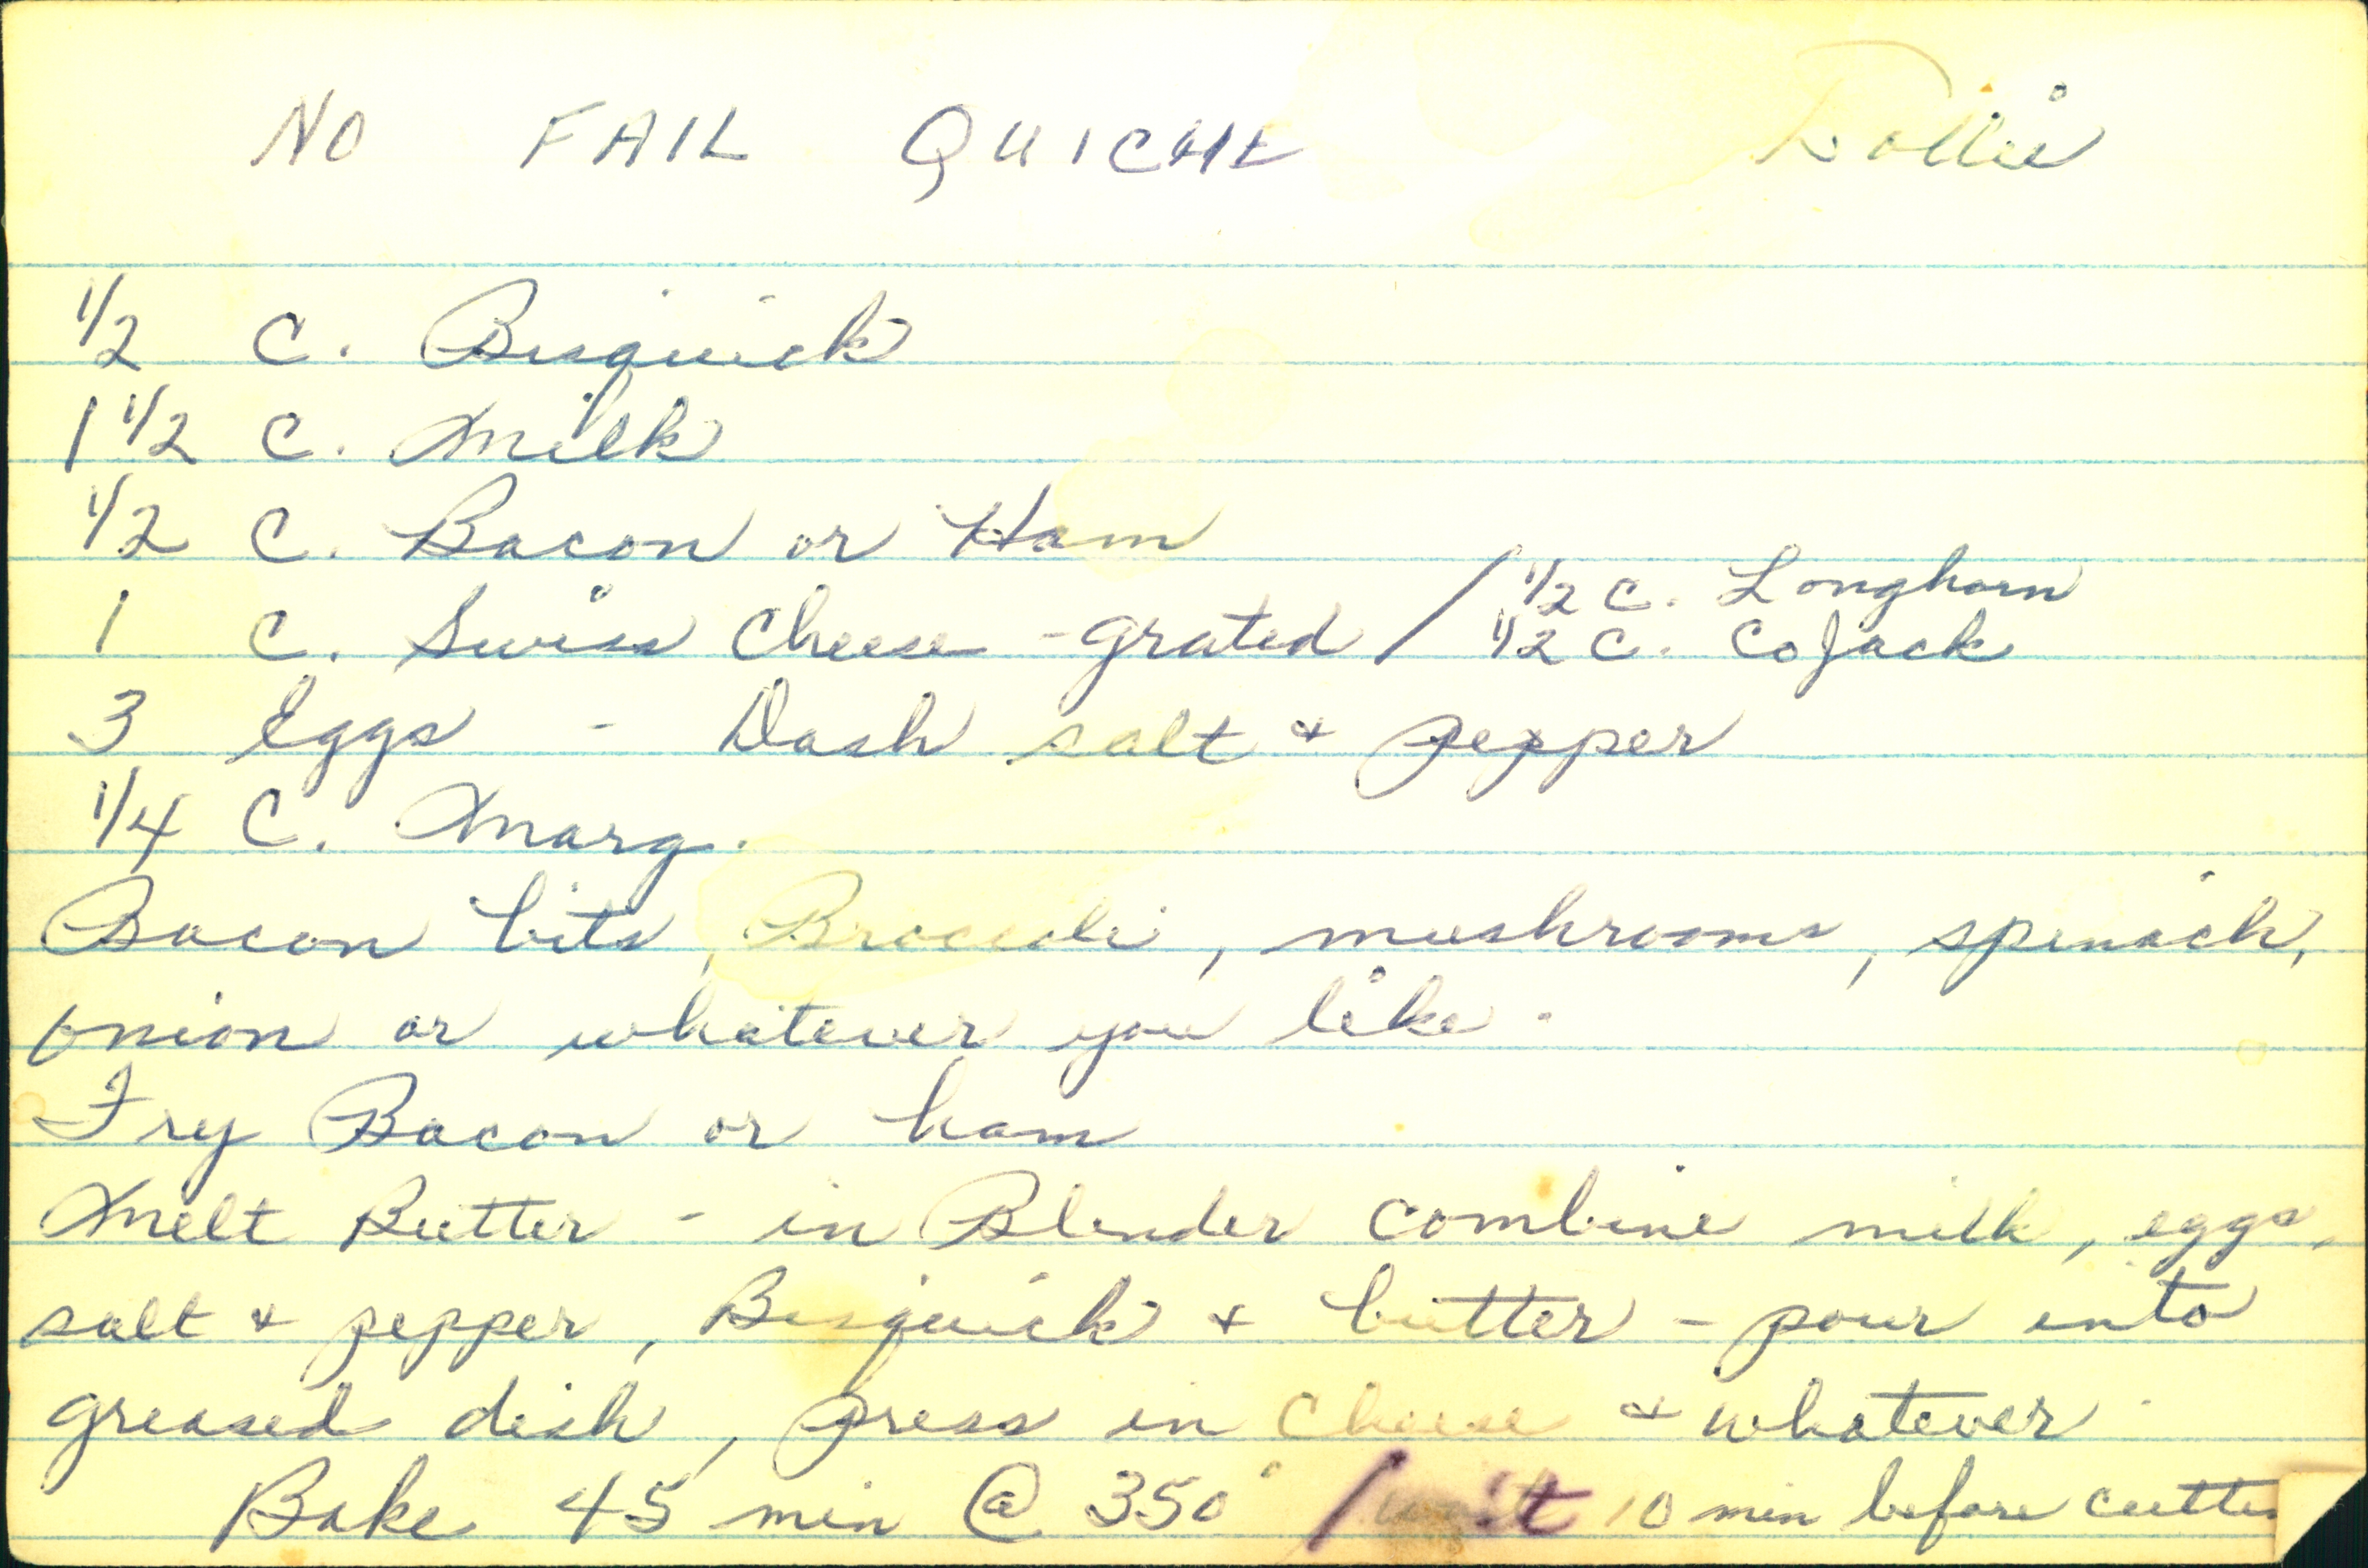 NO FAIL QUICHE Dollie
1/2 C. Bisquick
1 1/2 C. Milk
1/2 C. Bacon or Ham
1 C. Swiss Cheese - grated / 1/2 C. Longhorn
1/2 C. CoJack
3 Eggs - Dash salt & pepper
1/4 C. Marg.
Bacon bits, Broccoli, mushrooms, spinach,
onion or whatever you like.
Fry Bacon or ham
Melt Butter - in Blender combine milk, eggs,
salt & pepper, Bisquick & butter - pour into
greased dish, press in cheese & whatever.
Bake 45 min @ 350° / wait 10 min before